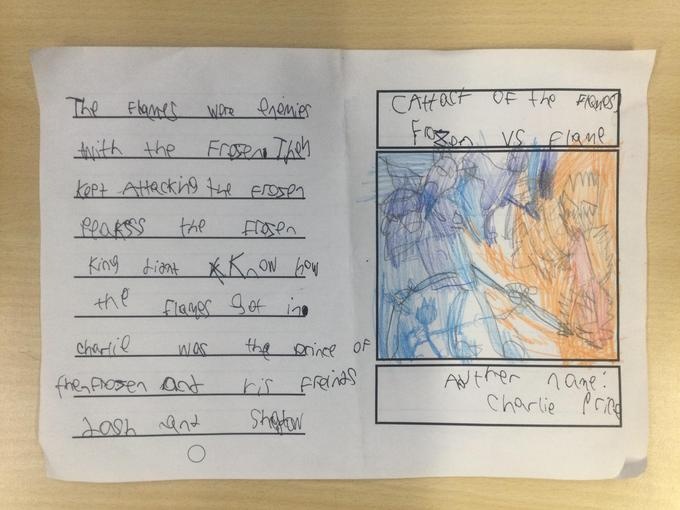 The Flames were enemies
with the Frosen. They
kept Attacking the Frosen
the Frosen
King didnt Know how
the flames got in
charlie was the prince of
then Frosen and his freinds
Josh and
CAttast OF the Flames
Frozen VS Flame
Auther name:
Charlie Price